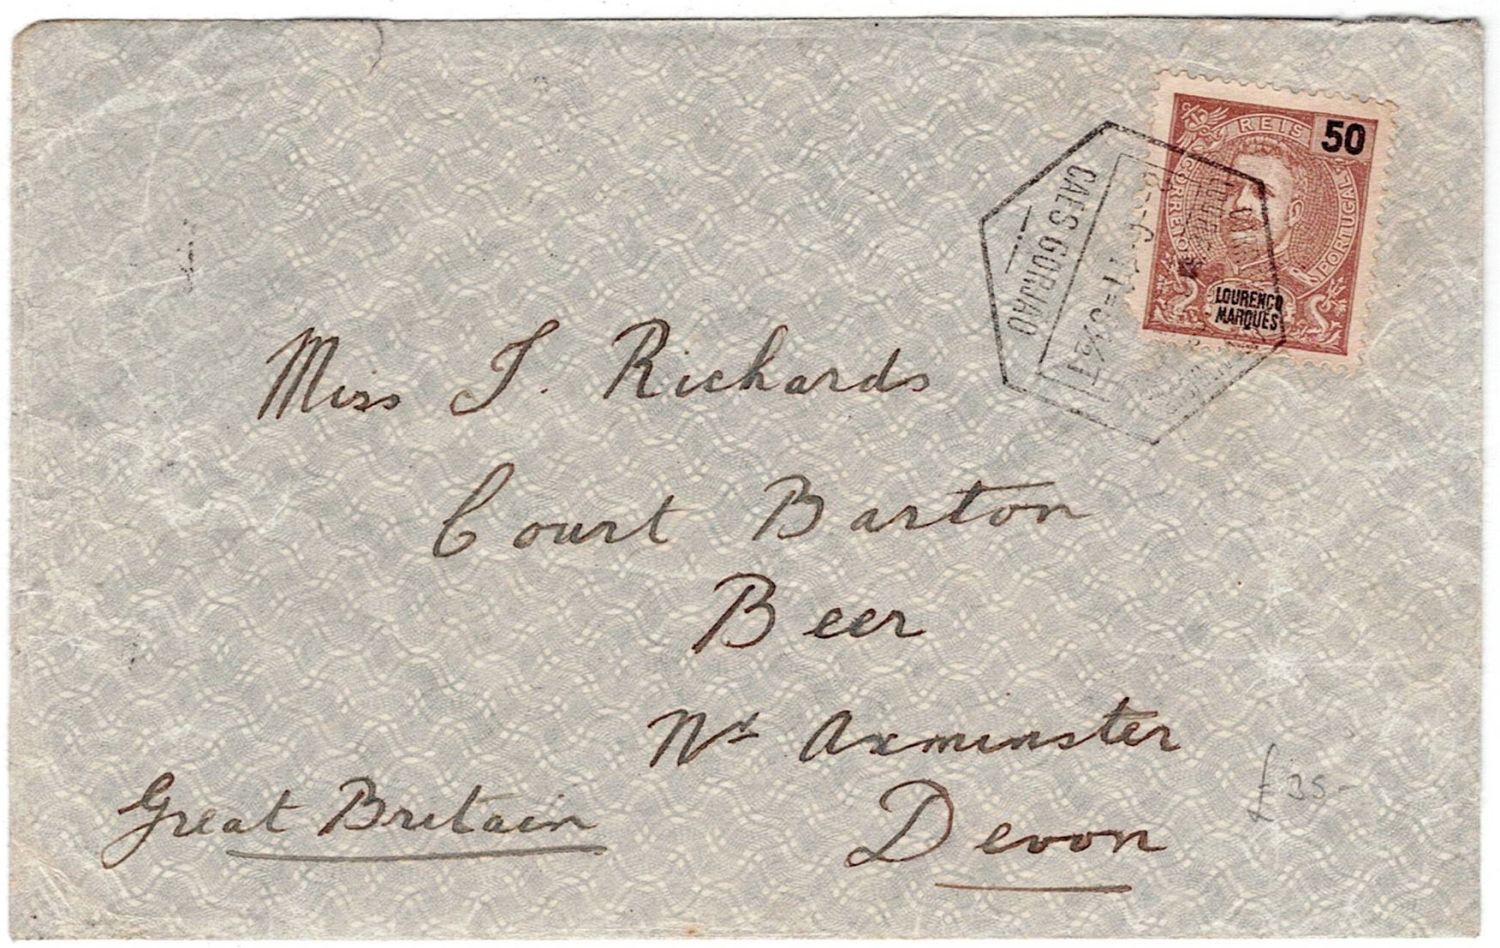 REIS 50
CORREIO
PORTUGAL
LOURENCO
MARQUES
CAES GORJAO
Miss J. Richards
Court Barton
Beer
Nr Axminster
Devon
Great Britain
£35-